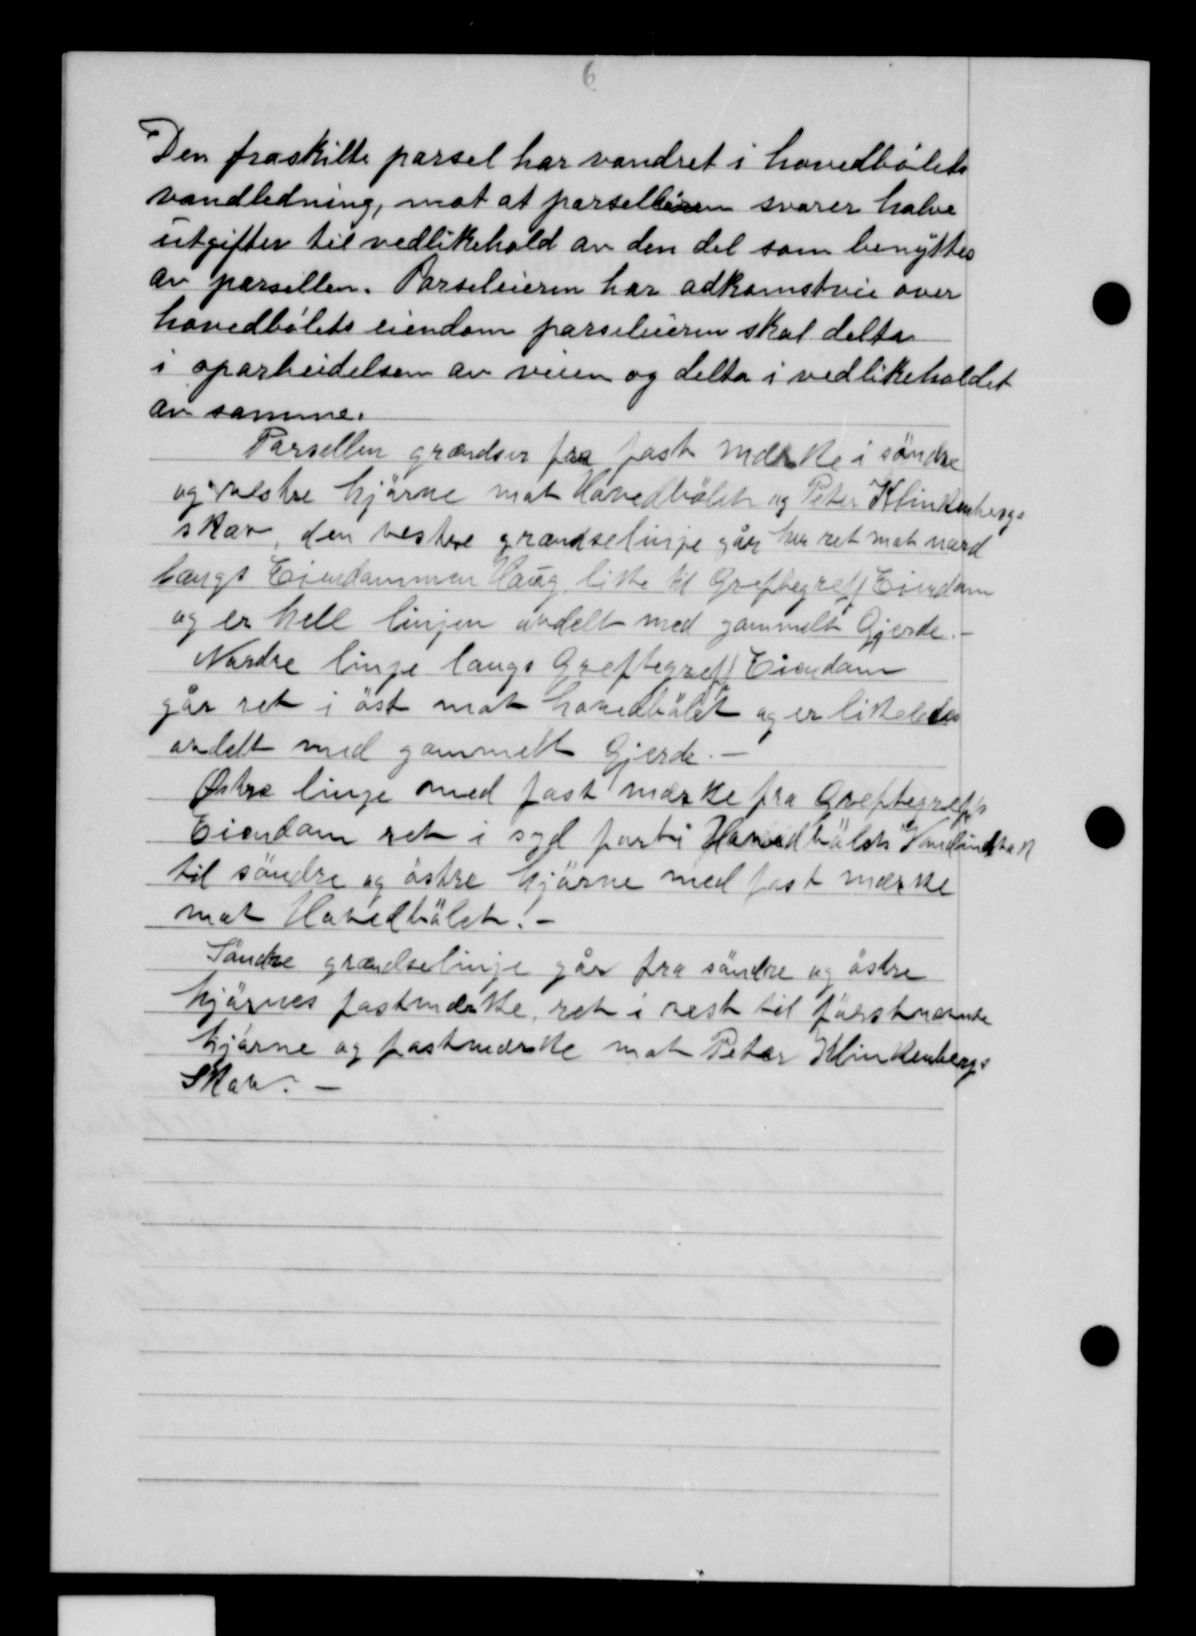 6
Den fraskilte parsel har vandret i hovedbölets
vandledning, mot at parselleieren svarer halve
utgifter til vedlikehold av den del som benyttes
av parsellen. Parseleieren har adkomstvei over
hovedbölets eiendom parseleieren skal delta
i oparbeidelsen av veien og delta i vedlikeholdet
av samme.
Parsellen grændser fra fast mærke i söndre
og vestre hjörne mot Hovedbölet og Peter Klinkenbergs
skov, den vestre grændselinje går her ret mot nord
langs Eiendommen Haug, like til Greftegreff Eiendom
og er hele linjen avdelt med gammelt Gjerde.-
Nordre linje langs Greftegreff Eiendom
går ret i öst mot hovedbölet og er likeledes
avdelt med gammelt Gjerde.-
Østre linje med fast mærke fra Greftegreffs
Eiendom ret i syd forbi Hovedbölets Vandindtak
til söndre og östre hjörne med fast mærke
mot Hovedbölet.-
Söndre grændselinje går fra söndre og östre
hjörnes fastmærke, ret i vest til förstnævnte
hjörne og fastmærke mot Peter Klinkenbergs
Skov.-